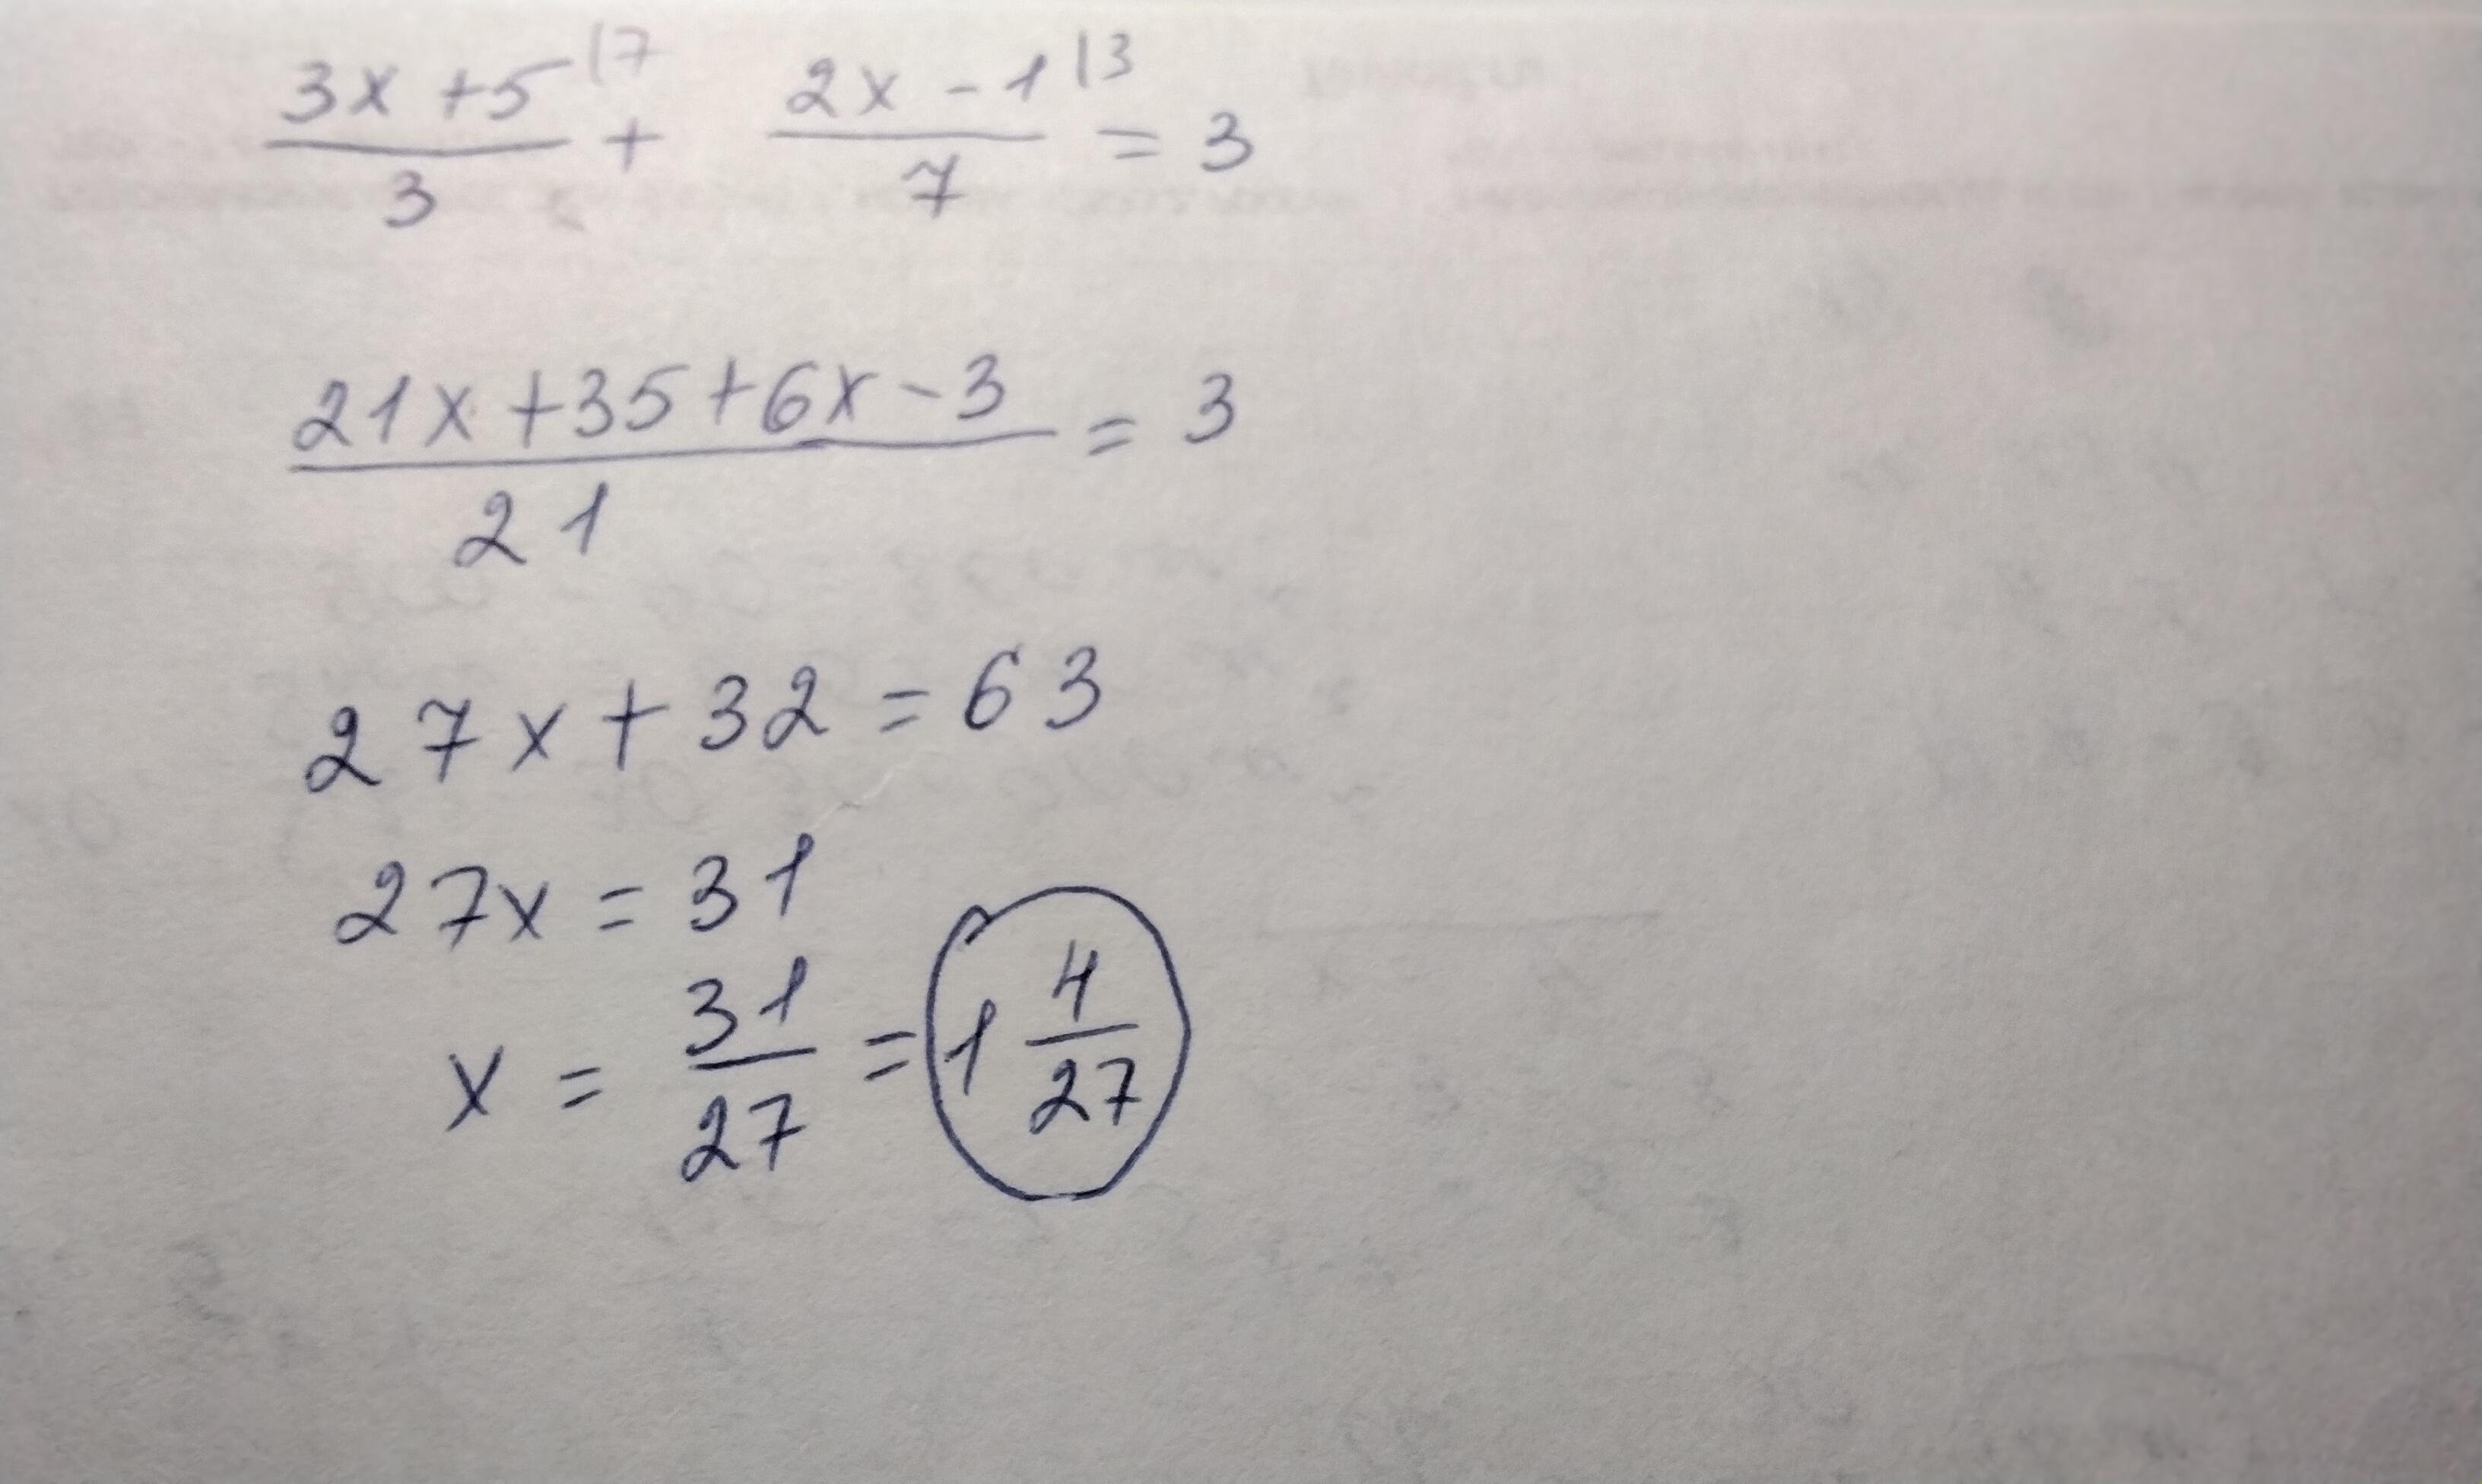 (3x+5)/3 |7 + (2x-1)/7 |3 = 3
(21x+35+6x-3)/21 = 3
27x+32=63
27x=31
x = 31/27 = 1 4/27